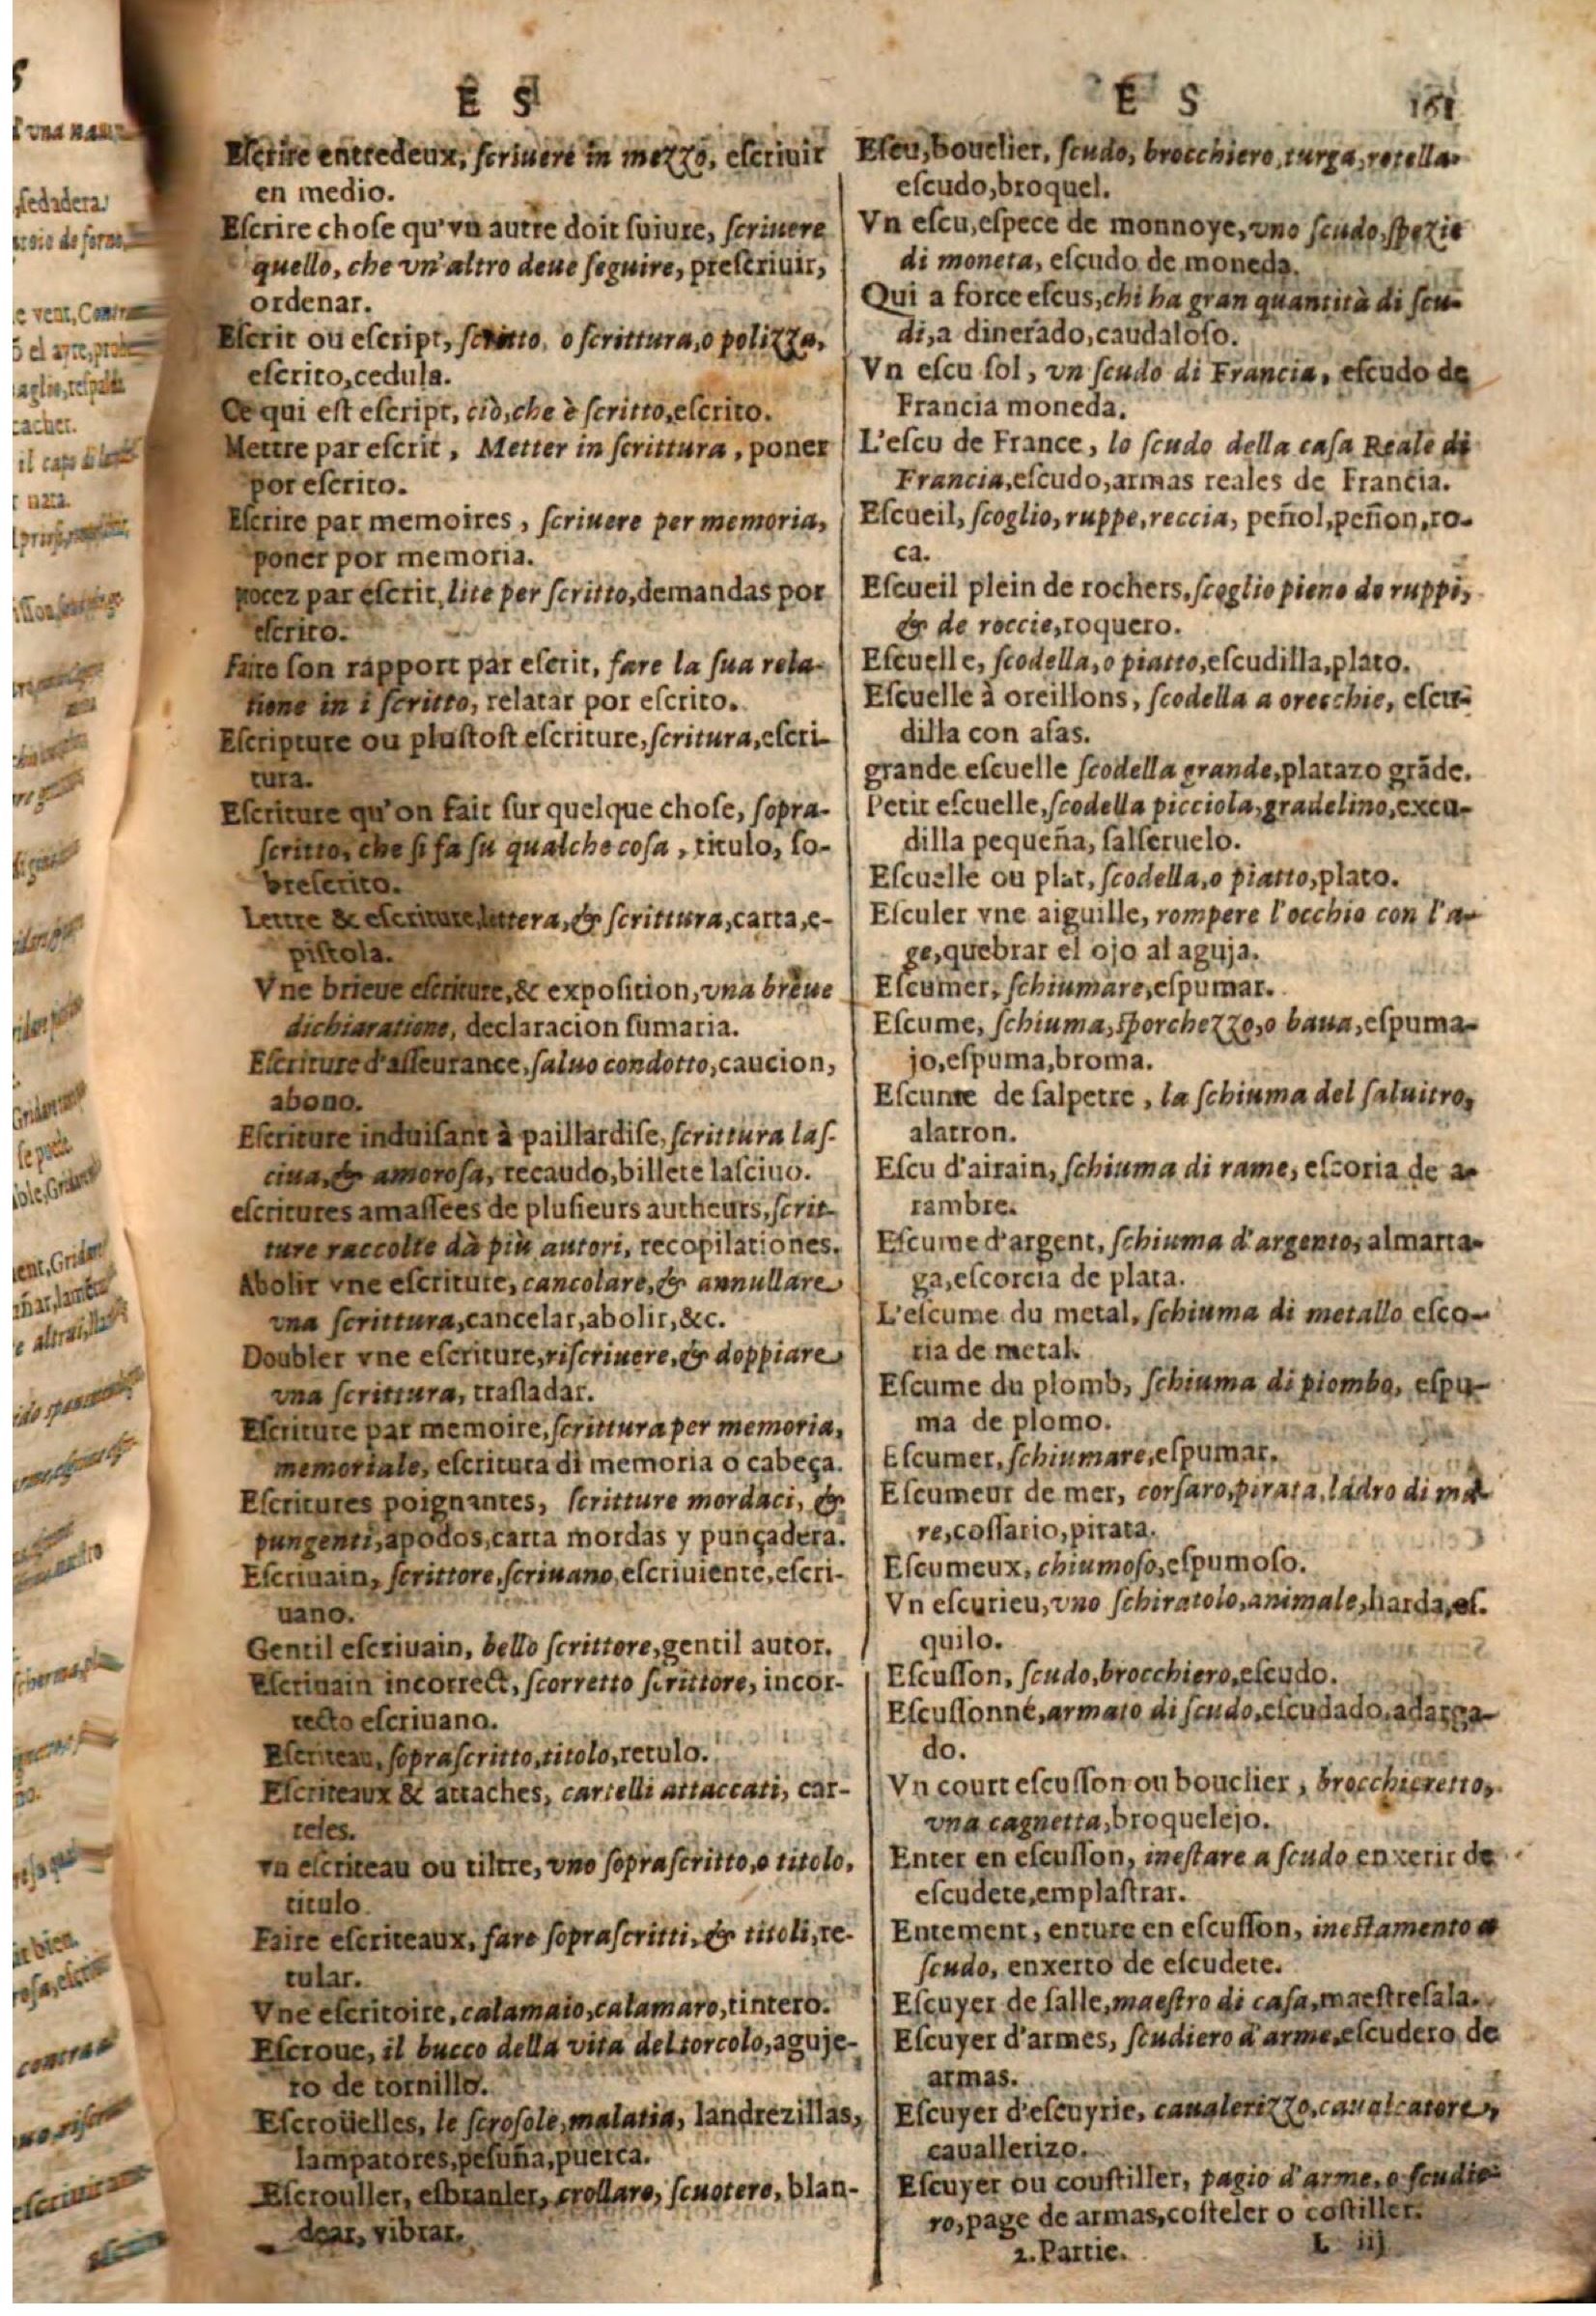 E S
Eſcrire entredeux, ſcriuere in mezzo, eſcriuir
en medio.
Eſcrire choſe qu'vn autre doit ſuiure, ſcriuere
quello, che vn'altro deue ſeguire, preſcriuir,
ordenar.
Eſcrit ou eſcript, ſcritto, o ſcrittura, o polizza,
eſcrito, cedula.
Ce qui eſt eſcript, ciò, che è ſcritto, eſcrito.
Mettre par eſcrit, Metter in ſcrittura, poner
por eſcrito.
Eſcrire par memoires, ſcriuere per memoria,
poner por memoria.
rocez par eſcrit, lite per ſcritto, demandas por
eſcrito.
Faire ſon rapport par eſcrit, fare la ſua rela-
tione in i ſcritto, relatar por eſcrito.
Eſcripture ou pluſtoſt eſcriture, ſcritura, eſcri-
tura.
Eſcriture qu'on fait ſur quelque choſe, ſopra-
ſcritto, che ſi fa ſu qualche coſa, titulo, ſo-
breſcrito.
Lettre & eſcriture, lettera, & ſcrittura, carta, e-
piſtola.
Vne brieue eſcriture, & expoſition, vna breue
dichiaratione, declaracion ſumaria.
Eſcriture d'aſſeurance, ſaluo condotto, caucion,
abono.
Eſcriture induiſant à paillardiſe, ſcrittura laſ-
ciua, & amoroſa, recaudo, billete laſciuo.
eſcritures amaſſees de pluſieurs autheurs, ſcrit-
ture raccolte dà più autori, recopilationes.
Abolir vne eſcriture, cancolare, & annullare
vna ſcrittura, cancelar, abolir, &c.
Doubler vne eſcriture, riſcriuere, & doppiare
vna ſcrittura, traſladar.
Eſcriture par memoire, ſcrittura per memoria,
memoriale, eſcritura di memoria o cabeça.
Eſcritures poignantes, ſcritture mordaci, &
pungenti, apodos, carta mordas y punçadera.
Eſcriuain, ſcrittore, ſcriuano, eſcriuiente, eſcri-
uano.
Gentil eſcriuain, bello ſcrittore, gentil autor.
Eſcriuain incorrect, ſcorretto ſcrittore, incor-
recto eſcriuano.
Eſcriteau, ſopraſcritto, titolo, retulo.
Eſcriteaux & attaches, cartelli attaccati, car-
teles.
vn eſcriteau ou tiltre, vno ſopraſcritto, o titolo,
titulo.
Faire eſcriteaux, fare ſopraſcritti, & titoli, re-
tular.
Vne eſcritoire, calamaio, calamaro, tintero.
Eſcroue, il bucco della vita del torcolo, aguje-
ro de tornillo.
Eſcroüelles, le ſcroſole, malatia, landrezillas,
lampatores, peſuña, puerca.
Eſcrouller, eſbranler, crollare, ſcuotere, blan-
dear, vibrar.
E S 161
Eſcu, bouclier, ſcudo, brocchiero, turga, rotella.
eſcudo, broquel.
Vn eſcu, eſpece de monnoye, vno ſcudo, ſpezie
di moneta, eſcudo de moneda.
Qui a force eſcus, chi ha gran quantità di ſcu-
di, a dinerado, caudaloſo.
Vn eſcu ſol, vn ſcudo di Francia, eſcudo de
Francia moneda.
L'eſcu de France, lo ſcudo della caſa Reale di
Francia, eſcudo, armas reales de Francia.
Eſcueil, ſcoglio, ruppe, reccia, peñol, peñon, ro-
ca.
Eſcueil plein de rochers, ſcoglio pieno de ruppi,
& de roccie, roquero.
Eſcuelle, ſcodella, o piatto, eſcudilla, plato.
Eſcuelle à oreillons, ſcodella a orecchie, eſcu-
dilla con aſas.
grande eſcuelle ſcodella grande, platazo grãde.
Petit eſcuelle, ſcodella picciola, gradelino, excu-
dilla pequeña, ſalſeruelo.
Eſcuelle ou plat, ſcodella, o piatto, plato.
Eſculer vne aiguille, rompere l'occhio con l'a-
ge, quebrar el ojo al aguja.
Eſcumer, ſchiumare, eſpumar.
Eſcume, ſchiuma, ſporchezzo, o baua, eſpuma-
jo, eſpuma, broma.
Eſcume de ſalpetre, la ſchiuma del ſaluitro,
alatron.
Eſcu d'airain, ſchiuma di rame, eſcoria de a-
rambre.
Eſcume d'argent, ſchiuma d'argento, almarta-
ga, eſcorcia de plata.
L'eſcume du metal, ſchiuma di metallo eſco-
ria de metal.
Eſcume du plomb, ſchiuma di piombo, eſpu-
ma de plomo.
Eſcumer, ſchiumare, eſpumar.
Eſcumeur de mer, corſaro, pirata, ladro di ma-
re, coſſario, pirata.
Eſcumeux, chiumoſo, eſpumoſo.
Vn eſcurieu, vno ſchiratolo, animale, harda, eſ-
quilo.
Eſcuſſon, ſcudo, brocchiero, eſcudo.
Eſcuſſonné, armato di ſcudo, eſcudado, adarga-
do.
Vn court eſcuſſon ou bouclier, brocchieretto,
vna cagnetta, broquelejo.
Enter en eſcuſſon, ineſtare a ſcudo enxerir de
eſcudete, emplaſtrar.
Entement, enture en eſcuſſon, ineſtamento a
ſcudo, enxerto de eſcudete.
Eſcuyer de ſalle, maeſtro di caſa, maeſtreſala.
Eſcuyer d'armes, ſcudiero d'arme, eſcudero de
armas.
Eſcuyer d'eſcuyrie, caualerizzo, caualcatore,
cauallerizo.
Eſcuyer ou couſtiller, pagio d'arme, o ſcudie-
ro, page de armas, coſteler o coſtiller.
2. Partie. L iij